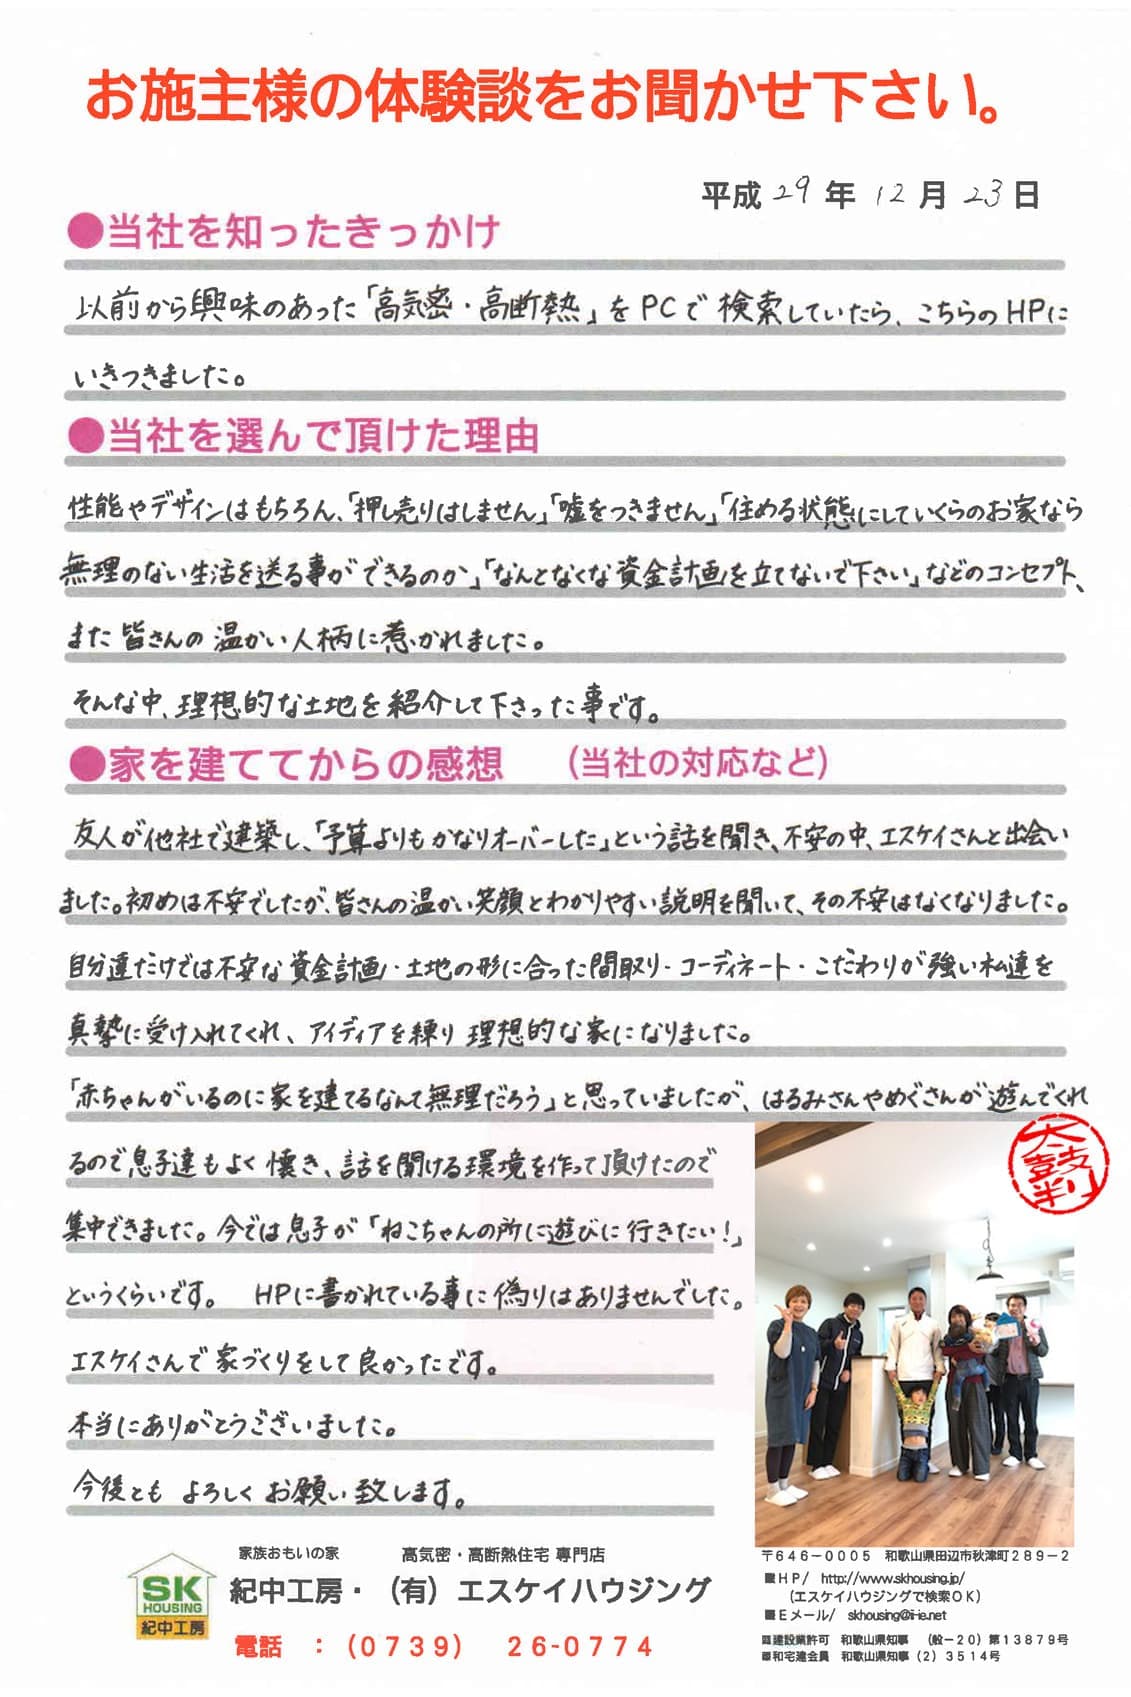 お施主様の体験談をお聞かせ下さい。
平成29年12月23日
●当社を知ったきっかけ
以前から興味のあった「高気密・高断熱」をPCで検索していたら、こちらのHPに
いきつきました。
●当社を選んで頂けた理由
性能やデザインはもちろん、「押し売りはしません」「嘘をつきません」「住める状態にしていくらのお家なら
無理のない生活を送る事ができるのか」「なんとなくな資金計画を立てないで下さい」などのコンセプト、
また皆さんの温かい人柄に惹かれました。
そんな中、理想的な土地を紹介して下さった事です。
●家を建ててからの感想 (当社の対応など)
友人が他社で建築し、「予算よりもかなりオーバーした」という話を聞き、不安の中、エスケイさんと出会い
ました。初めは不安でしたが、皆さんの温かい笑顔とわかりやすい説明を聞いて、その不安はなくなりました。
自分達だけでは不安な資金計画・土地の形に合った間取り・コーディネート・こだわりが強い私達を
真摯に受け入れてくれ、アイディアを練り理想的な家になりました。
「赤ちゃんがいるのに家を建てるなんて無理だろう」と思っていましたが、はるみさんやめぐさんが遊んでくれ
るので息子達もよく懐き、話を聞ける環境を作って頂けたので
集中できました。今では息子が「ねこちゃんの所に遊びに行きたい!」
というくらいです。 HPに書かれている事に偽りはありませんでした。
エスケイさんで家づくりをして良かったです。
本当にありがとうございました。
今後ともよろしくお願い致します。
太鼓判
家族おもいの家 高気密・高断熱住宅 専門店
SK
HOUSING
紀中工房
紀中工房・(有)エスケイハウジング
電話 :(0739) 26-0774
〒646-0005 和歌山県田辺市秋津町289-2
■HP/ http://www.skhousing.jp/
(エスケイハウジングで検索OK)
■Eメール/ skhousing@i-ie.net
■建設業許可 和歌山県知事 (般-20)第13879号
■和宅建会員 和歌山県知事(2)3514号